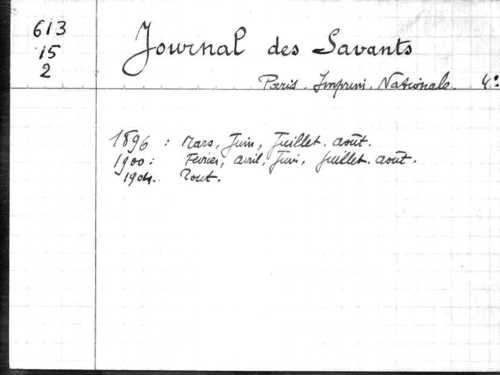 613
15
2
Journal des Savants
Paris. Imprim. Nationale. 4º
1896 : Mars, Juin, Juillet. août.
1900 : Fevrier, avril, Juin, Juillet. août.
1904. Tout.